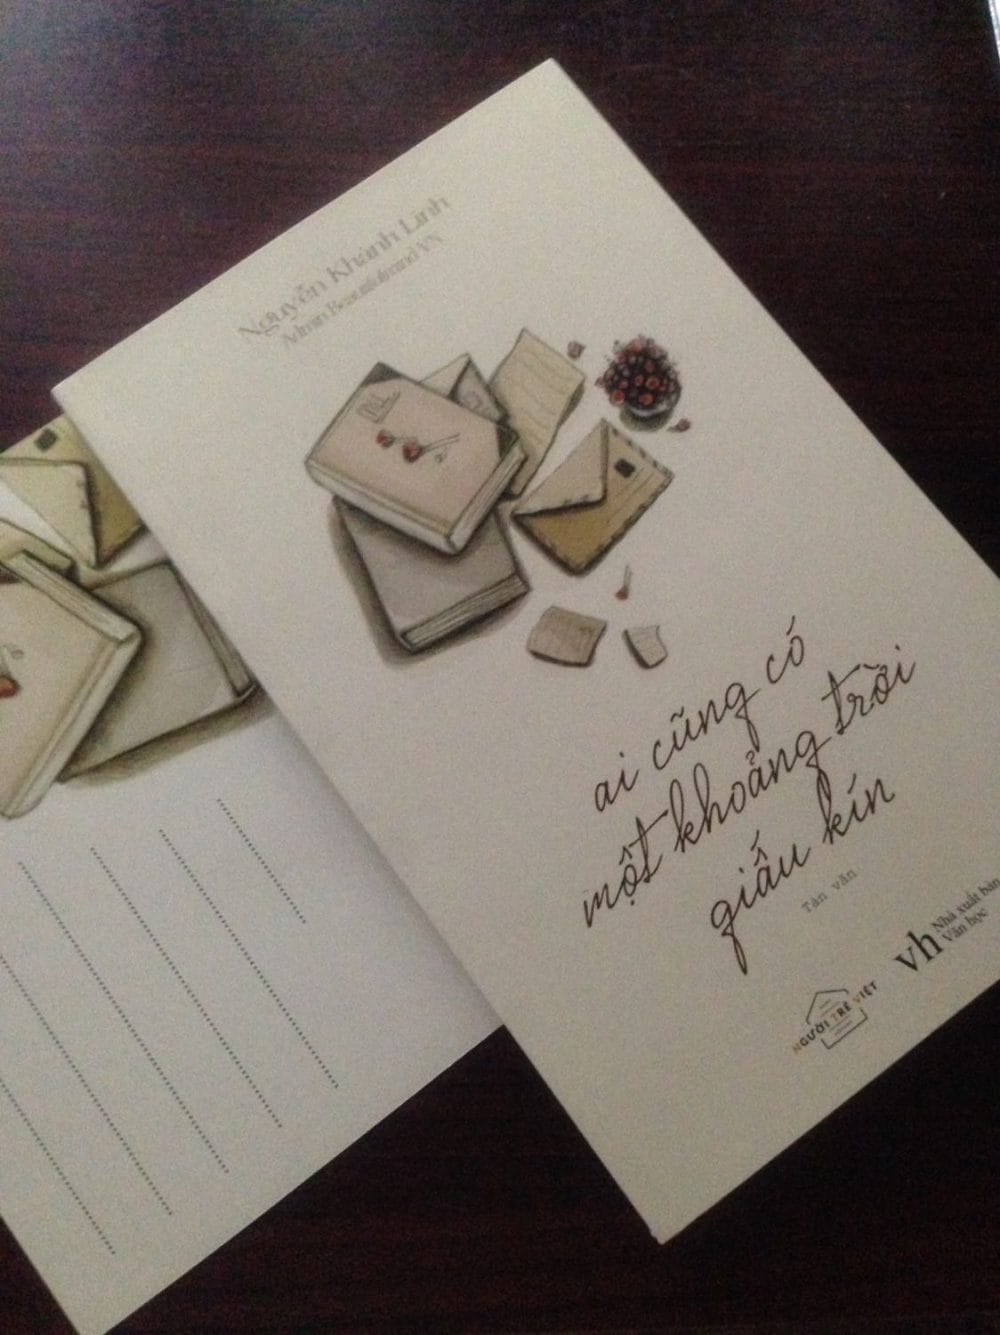 Nguyễn Khánh Linh
Admin Beautifulmind VN
ai cũng có
một khoảng trời
giấu kín
Tản văn
NGƯỜI TRẺ VIỆT
vh Nhà xuất bản
Văn học